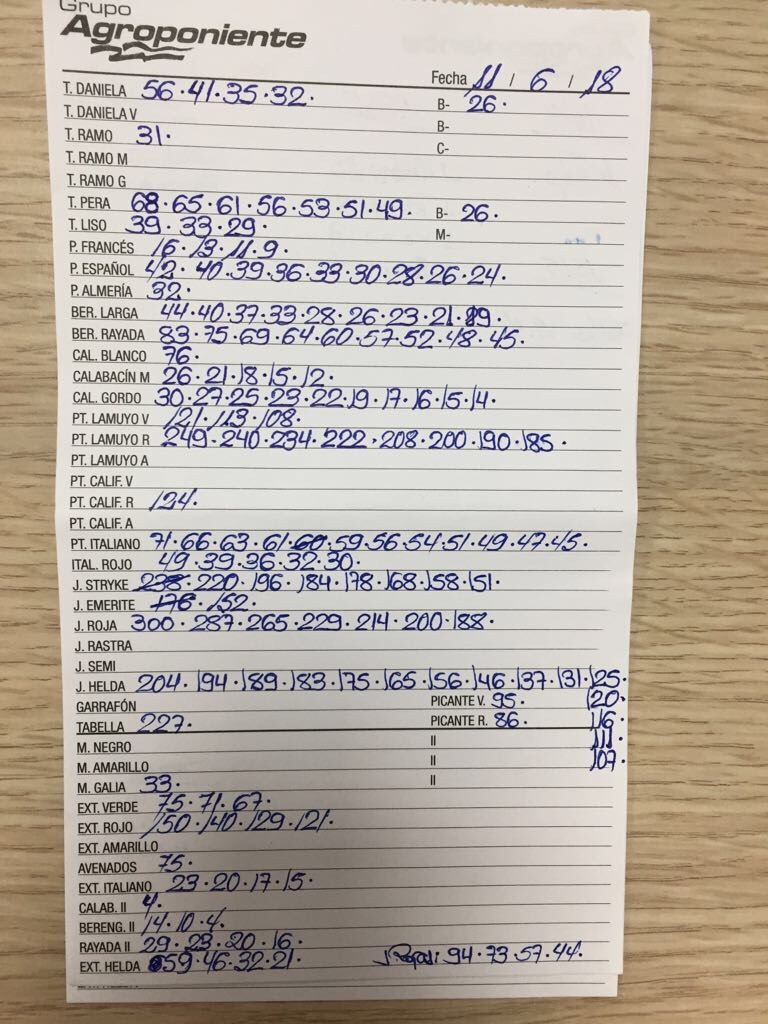 Grupo
Agroponiente
Fecha 11 / 6 / 18
T. DANIELA 56.41.35.32. B- 26.
T. DANIELA V B-
T. RAMO 31. C-
T. RAMO M
T. RAMO G
T. PERA 68.65.61.56.53.51.49. B- 26.
T. LISO 39.33.29. M-
P. FRANCÉS 16.13.11.9.
P. ESPAÑOL 42.40.39.36.33.30.28.26.24.
P. ALMERÍA 32.
BER. LARGA 44.40.37.33.28.26.23.21.19.
BER. RAYADA 83.75.69.64.60.57.52.48.45.
CAL. BLANCO 76.
CALABACÍN M 26.21.18.15.12.
CAL. GORDO 30.27.25.23.22.19.17.16.15.14.
PT. LAMUYO V 121.113.108.
PT. LAMUYO R 249.240.234.222.208.200.190.185.
PT. LAMUYO A
PT. CALIF. V
PT. CALIF. R 124.
PT. CALIF. A
PT. ITALIANO 71.66.63.61.60.59.56.54.51.49.47.45.
ITAL. ROJO 49.39.36.32.30.
J. STRYKE 238.220.196.184.178.168.158.151.
J. EMERITE 176.152.
J. ROJA 300.287.265.229.214.200.188.
J. RASTRA
J. SEMI
J. HELDA 204.194.189.183.175.165.156.146.137.131.125.
GARRAFÓN PICANTE V. 95. 120.
TABELLA 227. PICANTE R. 86. 116.
M. NEGRO II 111.
M. AMARILLO II 107.
M. GALIA 33. II
EXT. VERDE 75.71.67.
EXT. ROJO 150.140.129.121.
EXT. AMARILLO
AVENADOS 75.
EXT. ITALIANO 23.20.17.15.
CALAB. II 4.
BERENG. II 14.10.4.
RAYADA II 29.23.20.16.
EXT. HELDA 59.46.32.21. 94.73.57.44.